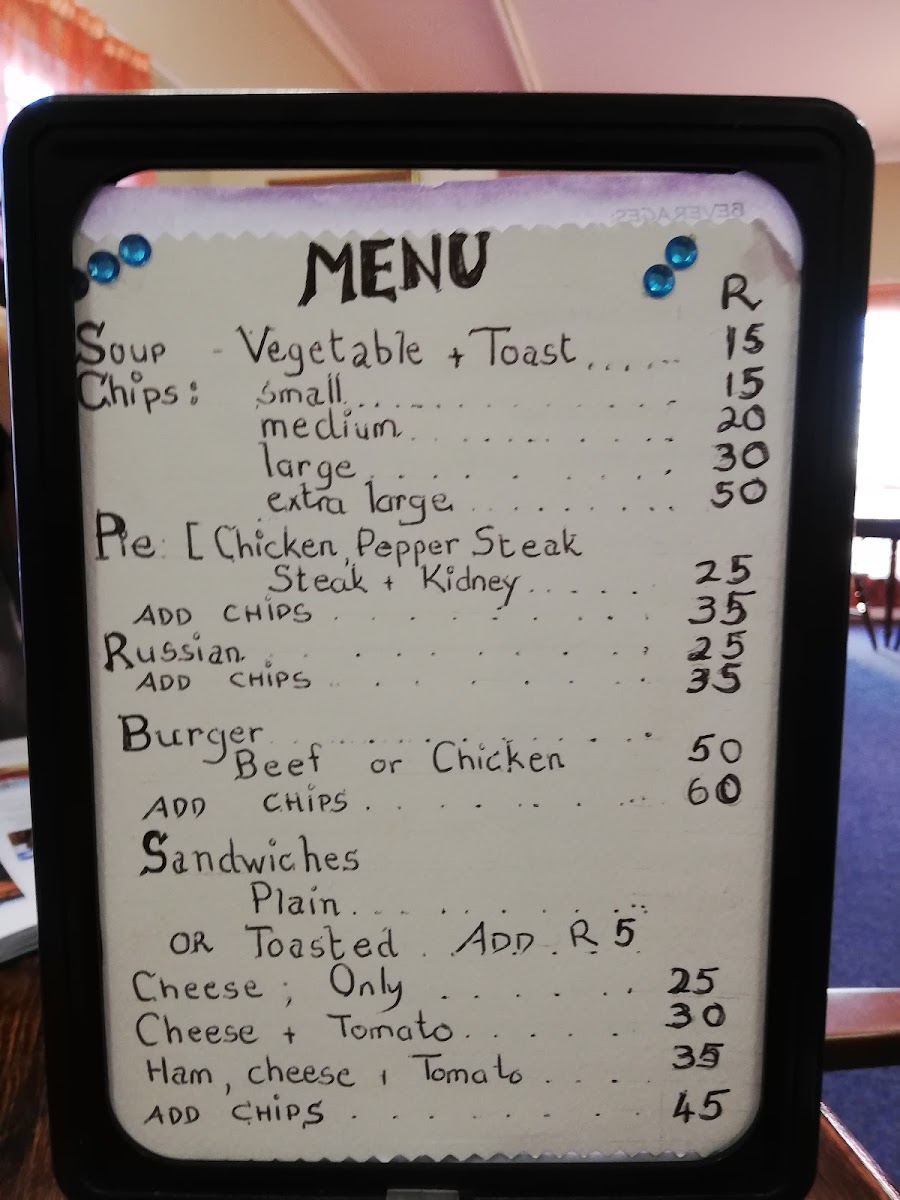 BEVERAGES:
MENU
R
Soup - Vegetable + Toast...... 15
Chips: small.......... 15
medium.......... 20
large.......... 30
extra large.......... 50
Pie: [Chicken, Pepper Steak
Steak + Kidney...... 25
ADD CHIPS.......... 35
Russian.......... 25
ADD CHIPS.......... 35
Burger..........
Beef or Chicken 50
ADD CHIPS.......... 60
Sandwiches
Plain..........
OR Toasted. ADD R 5
Cheese; Only....... 25
Cheese + Tomato...... 30
Ham, cheese + Tomato.... 35
ADD CHIPS.......... 45